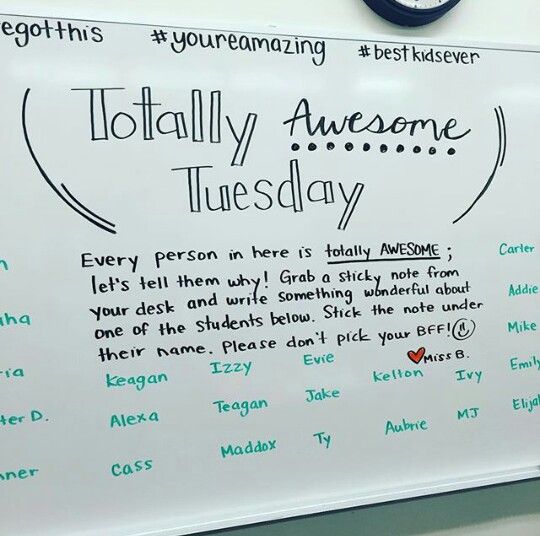 egotthis #youreamazing #bestkidsever
Totally Awesome
Tuesday
Every person in here is totally AWESOME;
let's tell them why! Grab a sticky note from
your desk and write something wonderful about
one of the students below. Stick the note under
their name. Please don't pick your BFF!
Miss B.
Carter
Addie
Mike
Keagan Izzy Evie Kelton Ivy Emily
ter D. Alexa Teagan Jake Aubrie MJ Elijah
nner Cass Maddox Ty